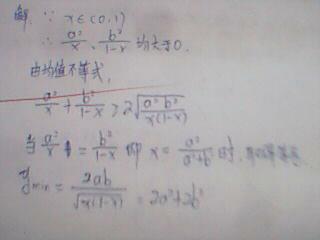 解: ∵ x∈(0,1)
∴ a²/x、b²/1-x 均大于0.
由均值不等式,
a²/x + b²/1-x ≥ 2√(a²b²/x(1-x))
当 a²/x = b²/1-x 即 x = a²/a²+b² 时,
y_min = 2ab/√x(1-x) = 2a²+2b²